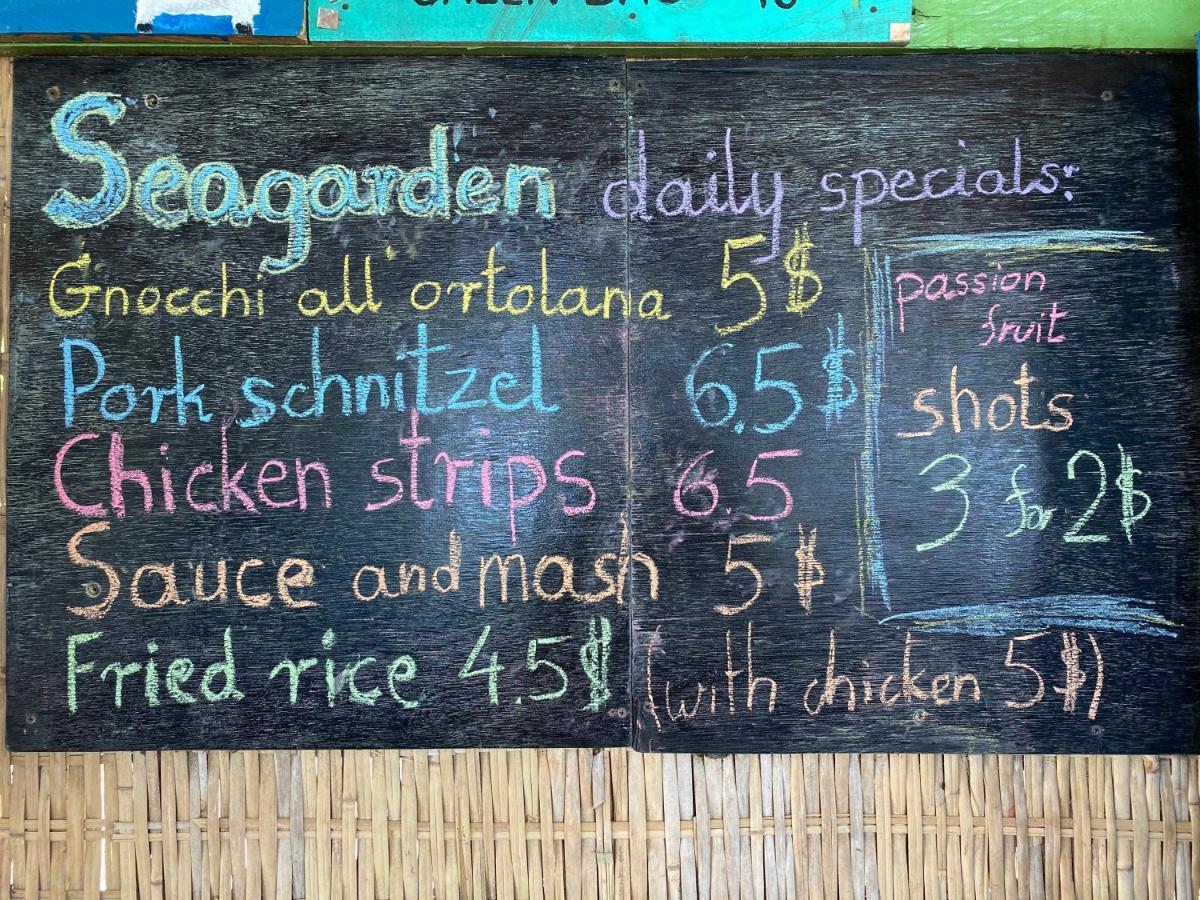 Seagarden daily specials:
Gnocchi all'ortolana 5$
Pork schnitzel 6.5$
Chicken strips 6.5
Sauce and mash 5$
Fried rice 4.5$ (with chicken 5$)
passion
fruit
shots
3 for 2$